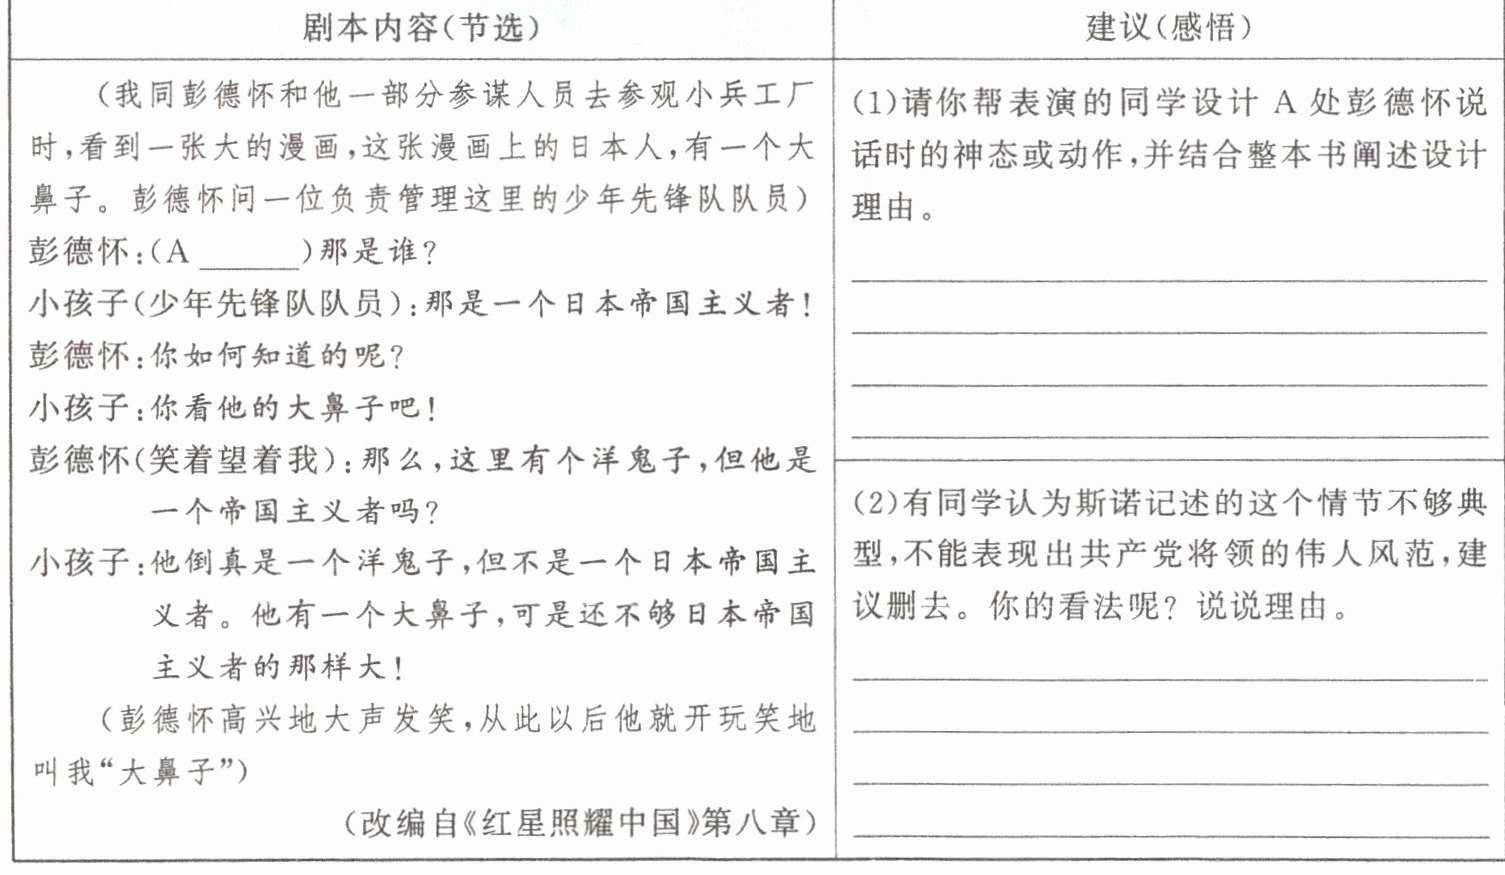 剧本内容(节选)
建议(感悟)
(我同彭德怀和他一部分参谋人员去参观小兵工厂
时,看到一张大的漫画,这张漫画上的日本人,有一个大
鼻子。彭德怀问一位负责管理这里的少年先锋队队员)
彭德怀:(A ______)那是谁?
小孩子(少年先锋队队员):那是一个日本帝国主义者!
彭德怀:你如何知道的呢?
小孩子:你看他的大鼻子吧!
彭德怀(笑着望着我):那么,这里有个洋鬼子,但他是
一个帝国主义者吗?
小孩子:他倒真是一个洋鬼子,但不是一个日本帝国主
义者。他有一个大鼻子,可是还不够日本帝国
主义者的那样大!
(彭德怀高兴地大声发笑,从此以后他就开玩笑地
叫我“大鼻子”)
(改编自《红星照耀中国》第八章)
(1)请你帮表演的同学设计 A 处彭德怀说
话时的神态或动作,并结合整本书阐述设计
理由。
(2)有同学认为斯诺记述的这个情节不够典
型,不能表现出共产党将领的伟人风范,建
议删去。你的看法呢?说说理由。